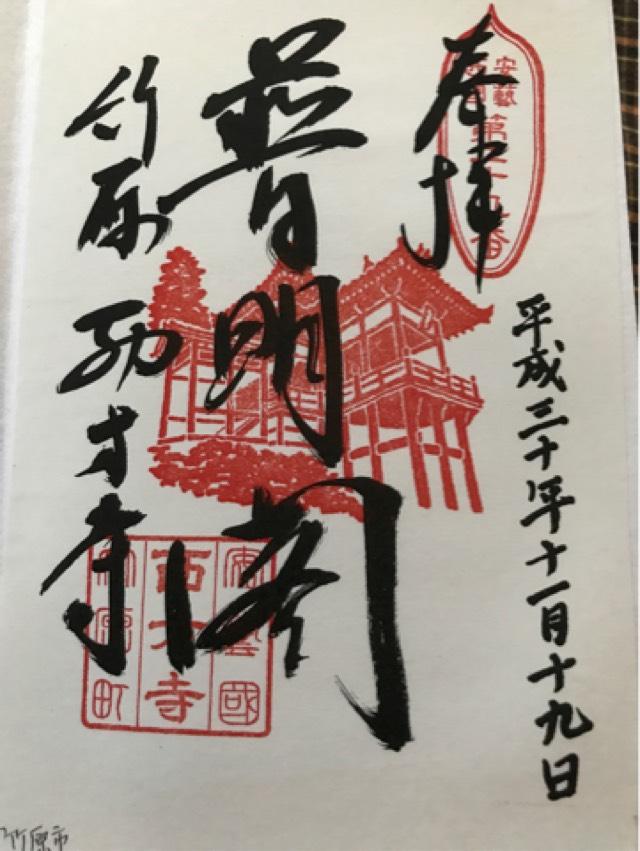 奉拝
平成三十年十一月十九日
普明閣
竹原 西方寺
安藝
第 十九番
安藝國
西方寺
町
竹原市